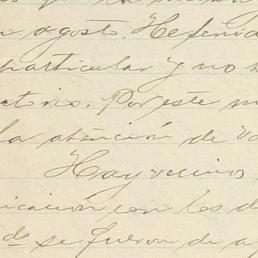 n agosto. He tenido
particular y no s
ctorio. Por este m
la atención de va
Hay vecinos
icacion con los d
do se fueron de a